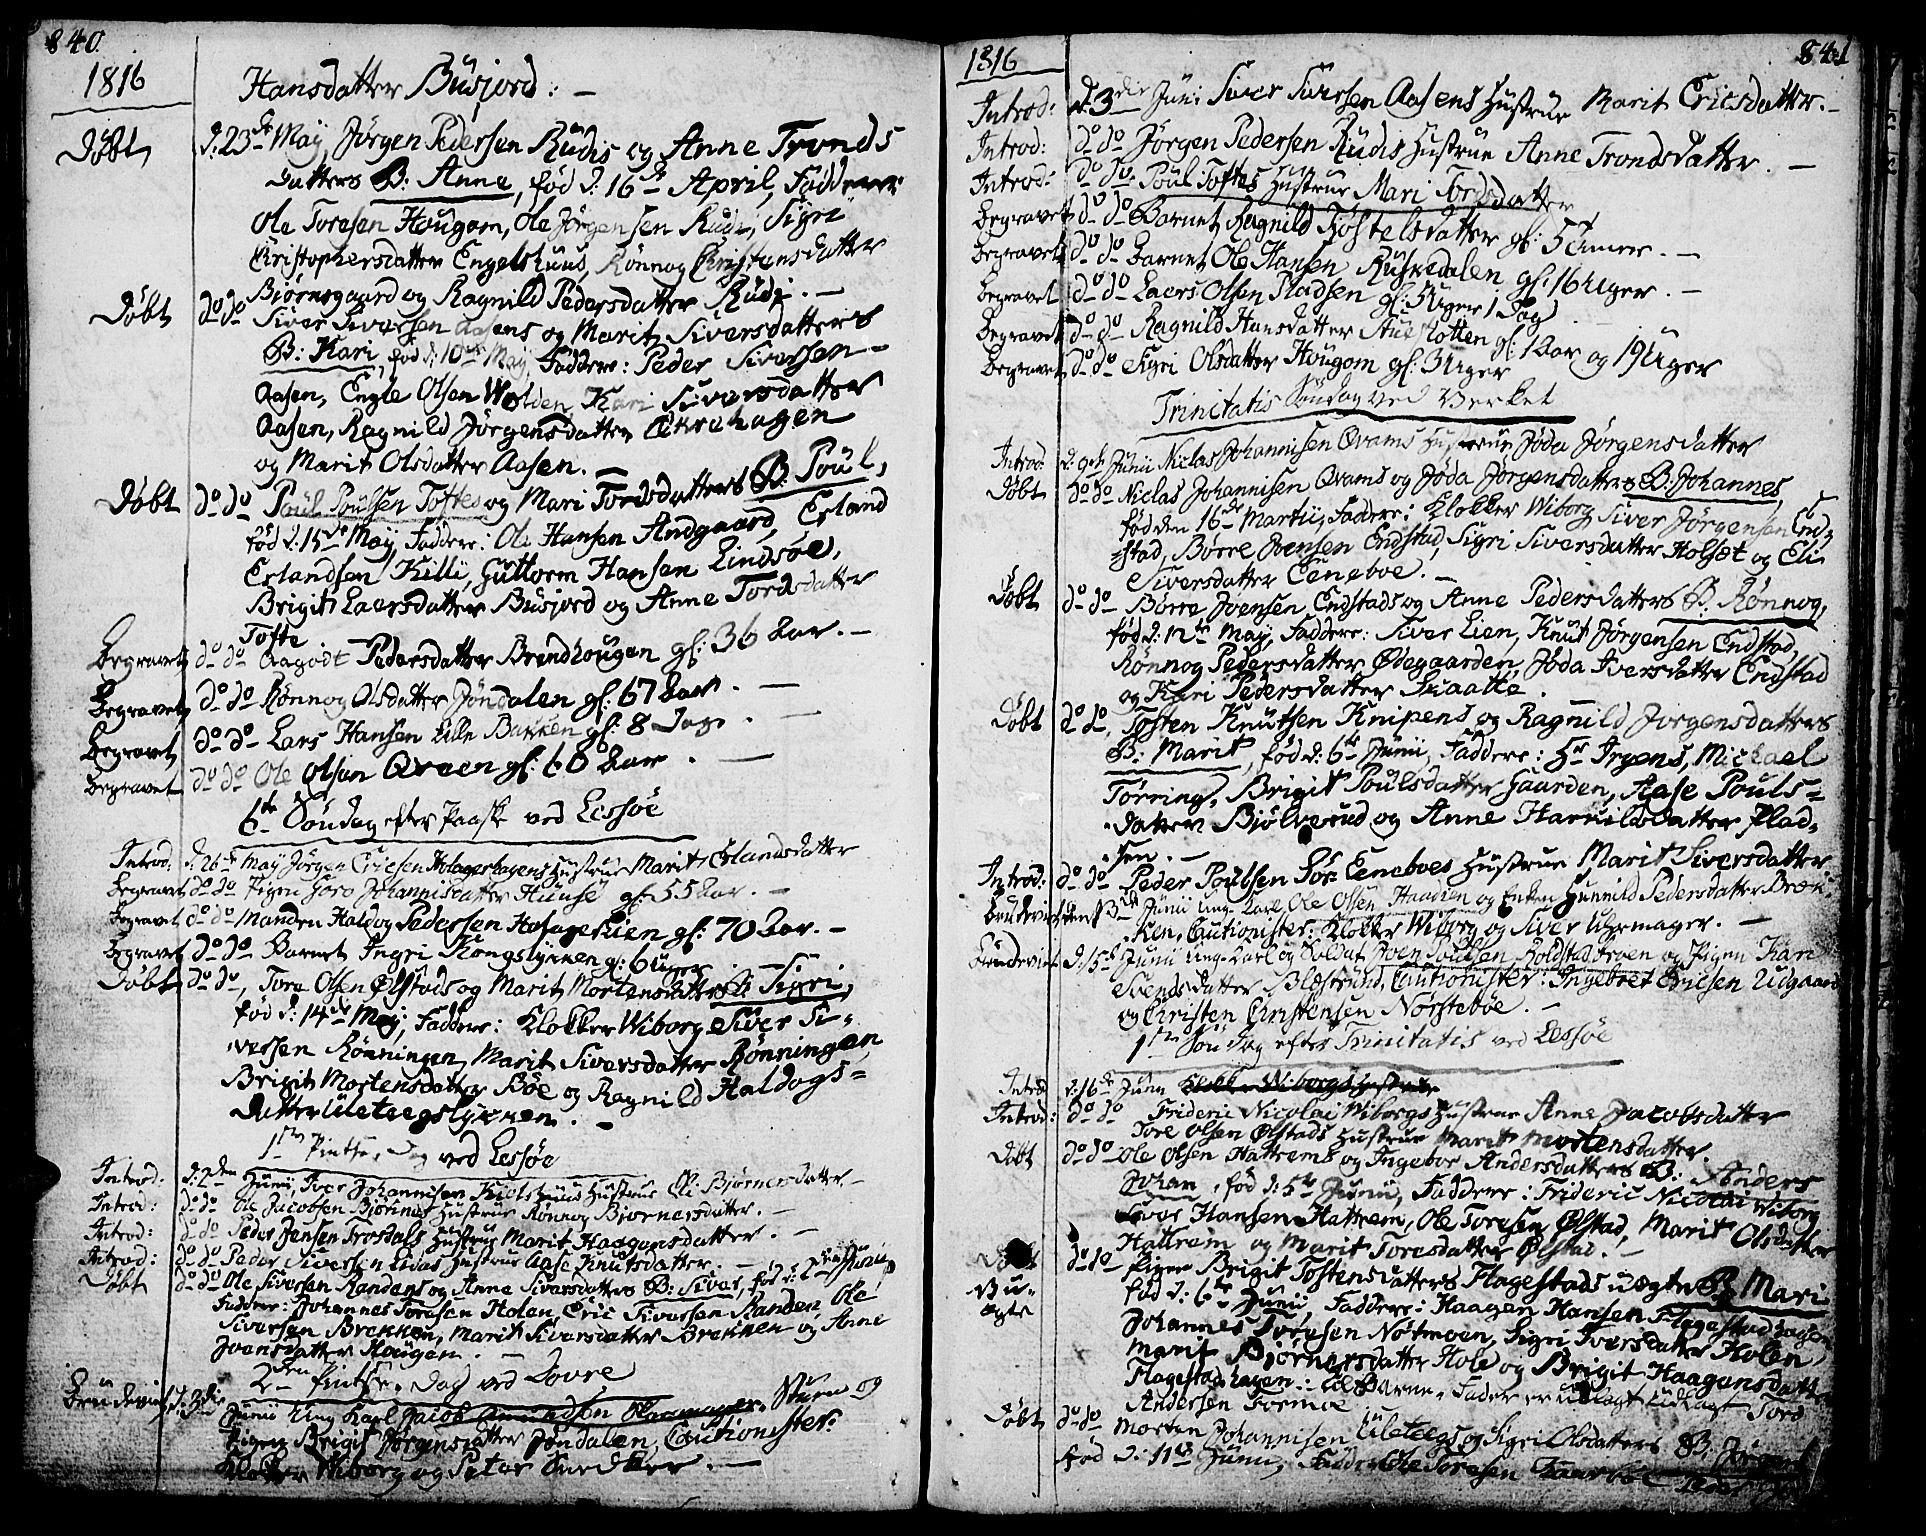 840.
1816
Hansdatter Busjord: -
Døbt d: 23de May Jørgen Pedersen Rudis og Anne Tronds
datters B: Anne, fød d: 16de April, Faddere
Ole Toresen Hougom, Ole Jørgensen Rudi, Sigri
Christophersdatter Engelshuus, Rønnog Christensdatter
Bjørnsgaard og Ragnild Pedersdatter Rudi. -
Døbt do do Siver Siversen Aasens og Marit Siversdatters
B: Kari, fød d: 10de May, Faddere: Peder Siversen
Aasen, Engle Olsen Wolden, Kari Siversdatter
Aasen, Ragnild Jørgensdatter Ækrehagen
og Marit Olsdatter Aasen.
Døbt do do Poul Poulsen Toftes og Mari Tordsdatters B: Poul,
fød d: 15de May, Faddere: Ole Hansen Andgaard, Erland
Erlandsen Killi, Guttorm Hansen Lindsøe,
Brigit Laersdatter Busjord og Anne Tordsdatter
Tofte
Begravet do do Aagodt Pedersdatter Brendhougen gl: 36 Aar. -
Begravet do do Rønnog Olsdatter Jøndalen gl: 67 Aar. -
Begravet do do Lars Hansen Lille Bakken gl: 8 Dage. -
Begravet do do Ole Olsen Qveen gl: 66 Aar. -
6te Søndag efter Paaske ved Lessøe
Introd: d: 26de May Jørgen Ericsen Holagerhagens Hustrue Marit Erlandsdatter
Begravet do do Pigen Goro Johannisdatter Huuse gl: 55 Aar. -
Begravet do do Manden Haldog Pedersen gl: 70 Aar. -
Begravet do do Barnet Ingri Kongslykken gl: 6 Uger
Døbt do do, Tore Olsen Ølstads og Marit Mortensdatters B: Sigri,
fød d: 14de May, Faddere: Klokker Wiborg, Siver Si-
versen Rønningen, Marit Siversdatter Rønningen,
Brigit Mortensdatter Bøe og Ragnild Haldogs-
datter Uleteegslykken. -
1ste Pintse Dag ved Lessøe
Introd: d: 2den Junii, Iver Johannisen Kiolshuus Hustrue Eli Bjørnersdatter -
Introd: do do Ole Jacobsen Bjørnnes Hustrue Rønnog Bjørnersdatter. -
Introd: do do Peder Jensen Trosdals Hustrue Marit Haagensdatter. -
Introd: do do Peder Siversen Lidas Hustrue Aase Knutsdatter. -
Døbt do do Ole Siversen Randens og Anne Siversdatters B: Siver, fød d: 2den Junii,
Faddere: Johannes Toresen Holen, Eric Siversen Randen, Ole
Siversen Brekken, Marit Siversdatter Brekken og Anne
Joensdatter Hougen. -
2den Pintse Dag ved Dovre
Brudeviet d: 3die Junii Ung Karl Jacob Amundsen Sturn og
Pigen Brigit Jørgensdatter Jøndalen, Cautionister:
Klokker Wiborg og Peter Snedker. -
841
1816
Introd: d: 3die Junii Siver Siversen Aasens Hustrue Marit Ericsdatter. -
Introd: do do Jørgen Pedersen Rudis Hustrue Anne Trondsdatter. -
Introd: do do Poul Toftes Hustrue Mari Tordsdatter
Begravet do do Barnet Ragnild Køstelsdatter gl: 5 Timer. -
Begravet do do Barnet Ole Hansen Ruskedalen gl: 16 Uger. -
Begravet do do Laers Olsen Pladsen gl: 5 Uger 1 Dag
Begravet do do Ragnild Hansdatter gl: 1 Aar og 19 Uger
Begravet do do Sigri Olsdatter Hougom gl: 3 Uger
Trinitatis Søndag ved Verket
Introd: d: 9de Junii Niclas Johannisen Qvams Hustrue Jøda Jørgensdatter
Døbt do do Niclas Johannisen Qvams og Jøda Jørgensdatters B: Johannes,
fød den 16de Martii, Faddere: Klokker Wiborg, Siver Jørgensen End-
stad, Børre Joensen Endstad, Sigri Siversdatter Holset og Eli
Siversdatter Eeneboe. -
Døbt do do Børre Joensen Endstads og Anne Pedersdatters B: Rønnog,
fød d: 12te May, Faddere: Siver Lien, Knut Jørgensen Endstad,
Rønnog Pedersdatter Ødegaarden, Jøda Iversdatter Endstad
og Kari Pedersdatter Skaatte.
Døbt do do Tosten Knutsen Knipens og Ragnild Jørgensdatters
B: Marit, fød d: 6te Junii, Faddere: Hr Irgens, Michael
Tørring, Brigit Poulsdatter Gaarden, Aase Pouls-
datter Bjølverud og Anne Hannilsdatter Plad-
sen. -
Introd: do do Peder Poulsen Sør Eeneboes Hustrue Marit Siversdatter
Brudeviet Junii Ung Karl Ole Olsen Haadien og Enken Gunnild Pedersdatter Bræk-
ken, Cautionister: Klokker Wiborg og Siver Uhrmager. -
Brudeviet d: 15de Junii Ung Karl og Soldat Joen Poulsen og Pigen Kari
Svendsdatter, Cautionister: Ingebret Ericsen Udgaard
og Christen Christensen Norstebøe. -
1ste Søndag efter Trinitatis ved Lessøe
Introd: d: 16de Junii Klokker Wiborgs Hustrue
Frideric Nicolai Wiborgs Hustrue Anne Jacobsdatter
Introd: do do Tore Olsen Ølstads Hustrue Marit Mortensdatter
Døbt do do Ole Olsen Hattrems og Ingebor Andersdatters B: Anders
Johan, fød d: 5te Junii, Faddere: Frideric Nicolai Wiborg
Hansen Hattrem, Ole Toresen Ølstad, Marit Olsdatter
Hattrem og Marit Toresdatter Ølstad. -
Døbt do do Pigen Brigit Tostensdatters Flagestads uægte B: Mari
Bu-
ægte
fød d: 6te Junii, Faddere: Haagen Hansen Flagestadhagen
Johannes Toresen Nørmoen, Sigri Iversdatter Holen,
Marit Bjørnersdatter Hole og Brigit Haagensdatter
Flagestadhagen: til Barne-Fader er udlagt Tord
Andersen Formoe
Døbt do do Morten Johannisen Uleteegs og Sigri Olsdatters B: Jørgen
fød d: 11te Junii, Faddere Ole Toresen